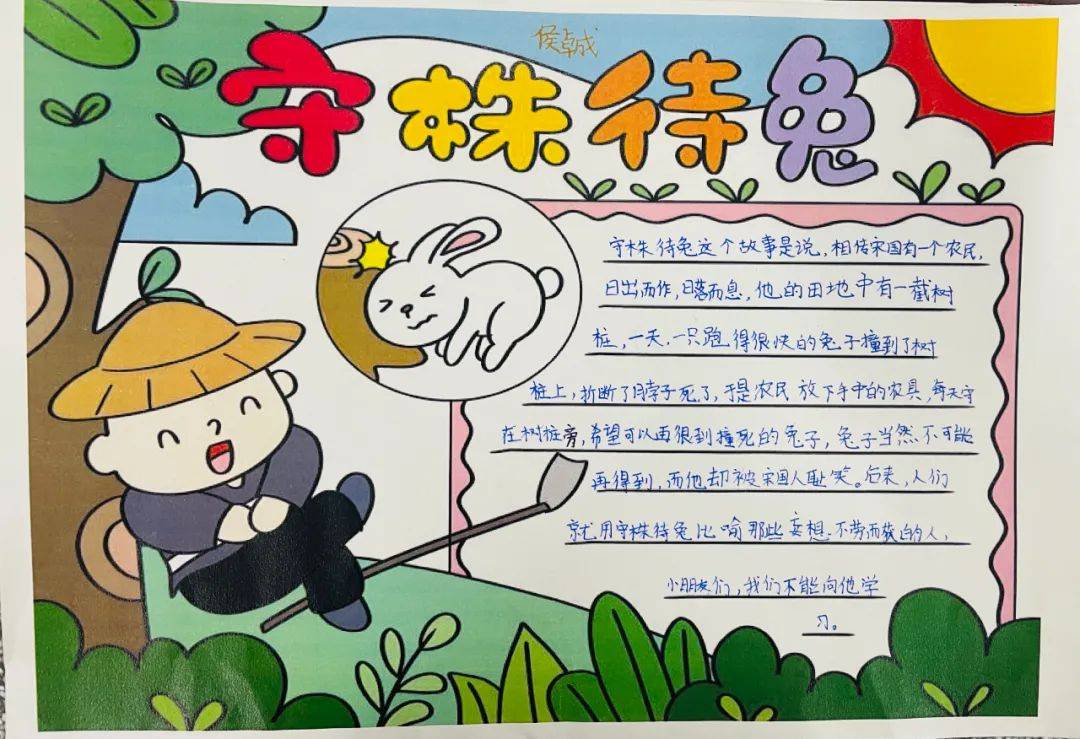 侯卓成
守株待兔
守株待兔这个故事是说，相传宋国有一个农民，
日出而作，日落而息，他的田地中有一截树
桩，一天，一只跑得很快的兔子撞到了树
桩上，折断了脖子死了，于是农民放下手中的农具，每天守
在树桩旁，希望可以再很到撞死的兔子，兔子当然不可能
再得到，而他却被宋国人耻笑。后来，人们
就用守株待兔比喻那些妄想不劳而获的人，
小朋友们，我们不能向他学
习。